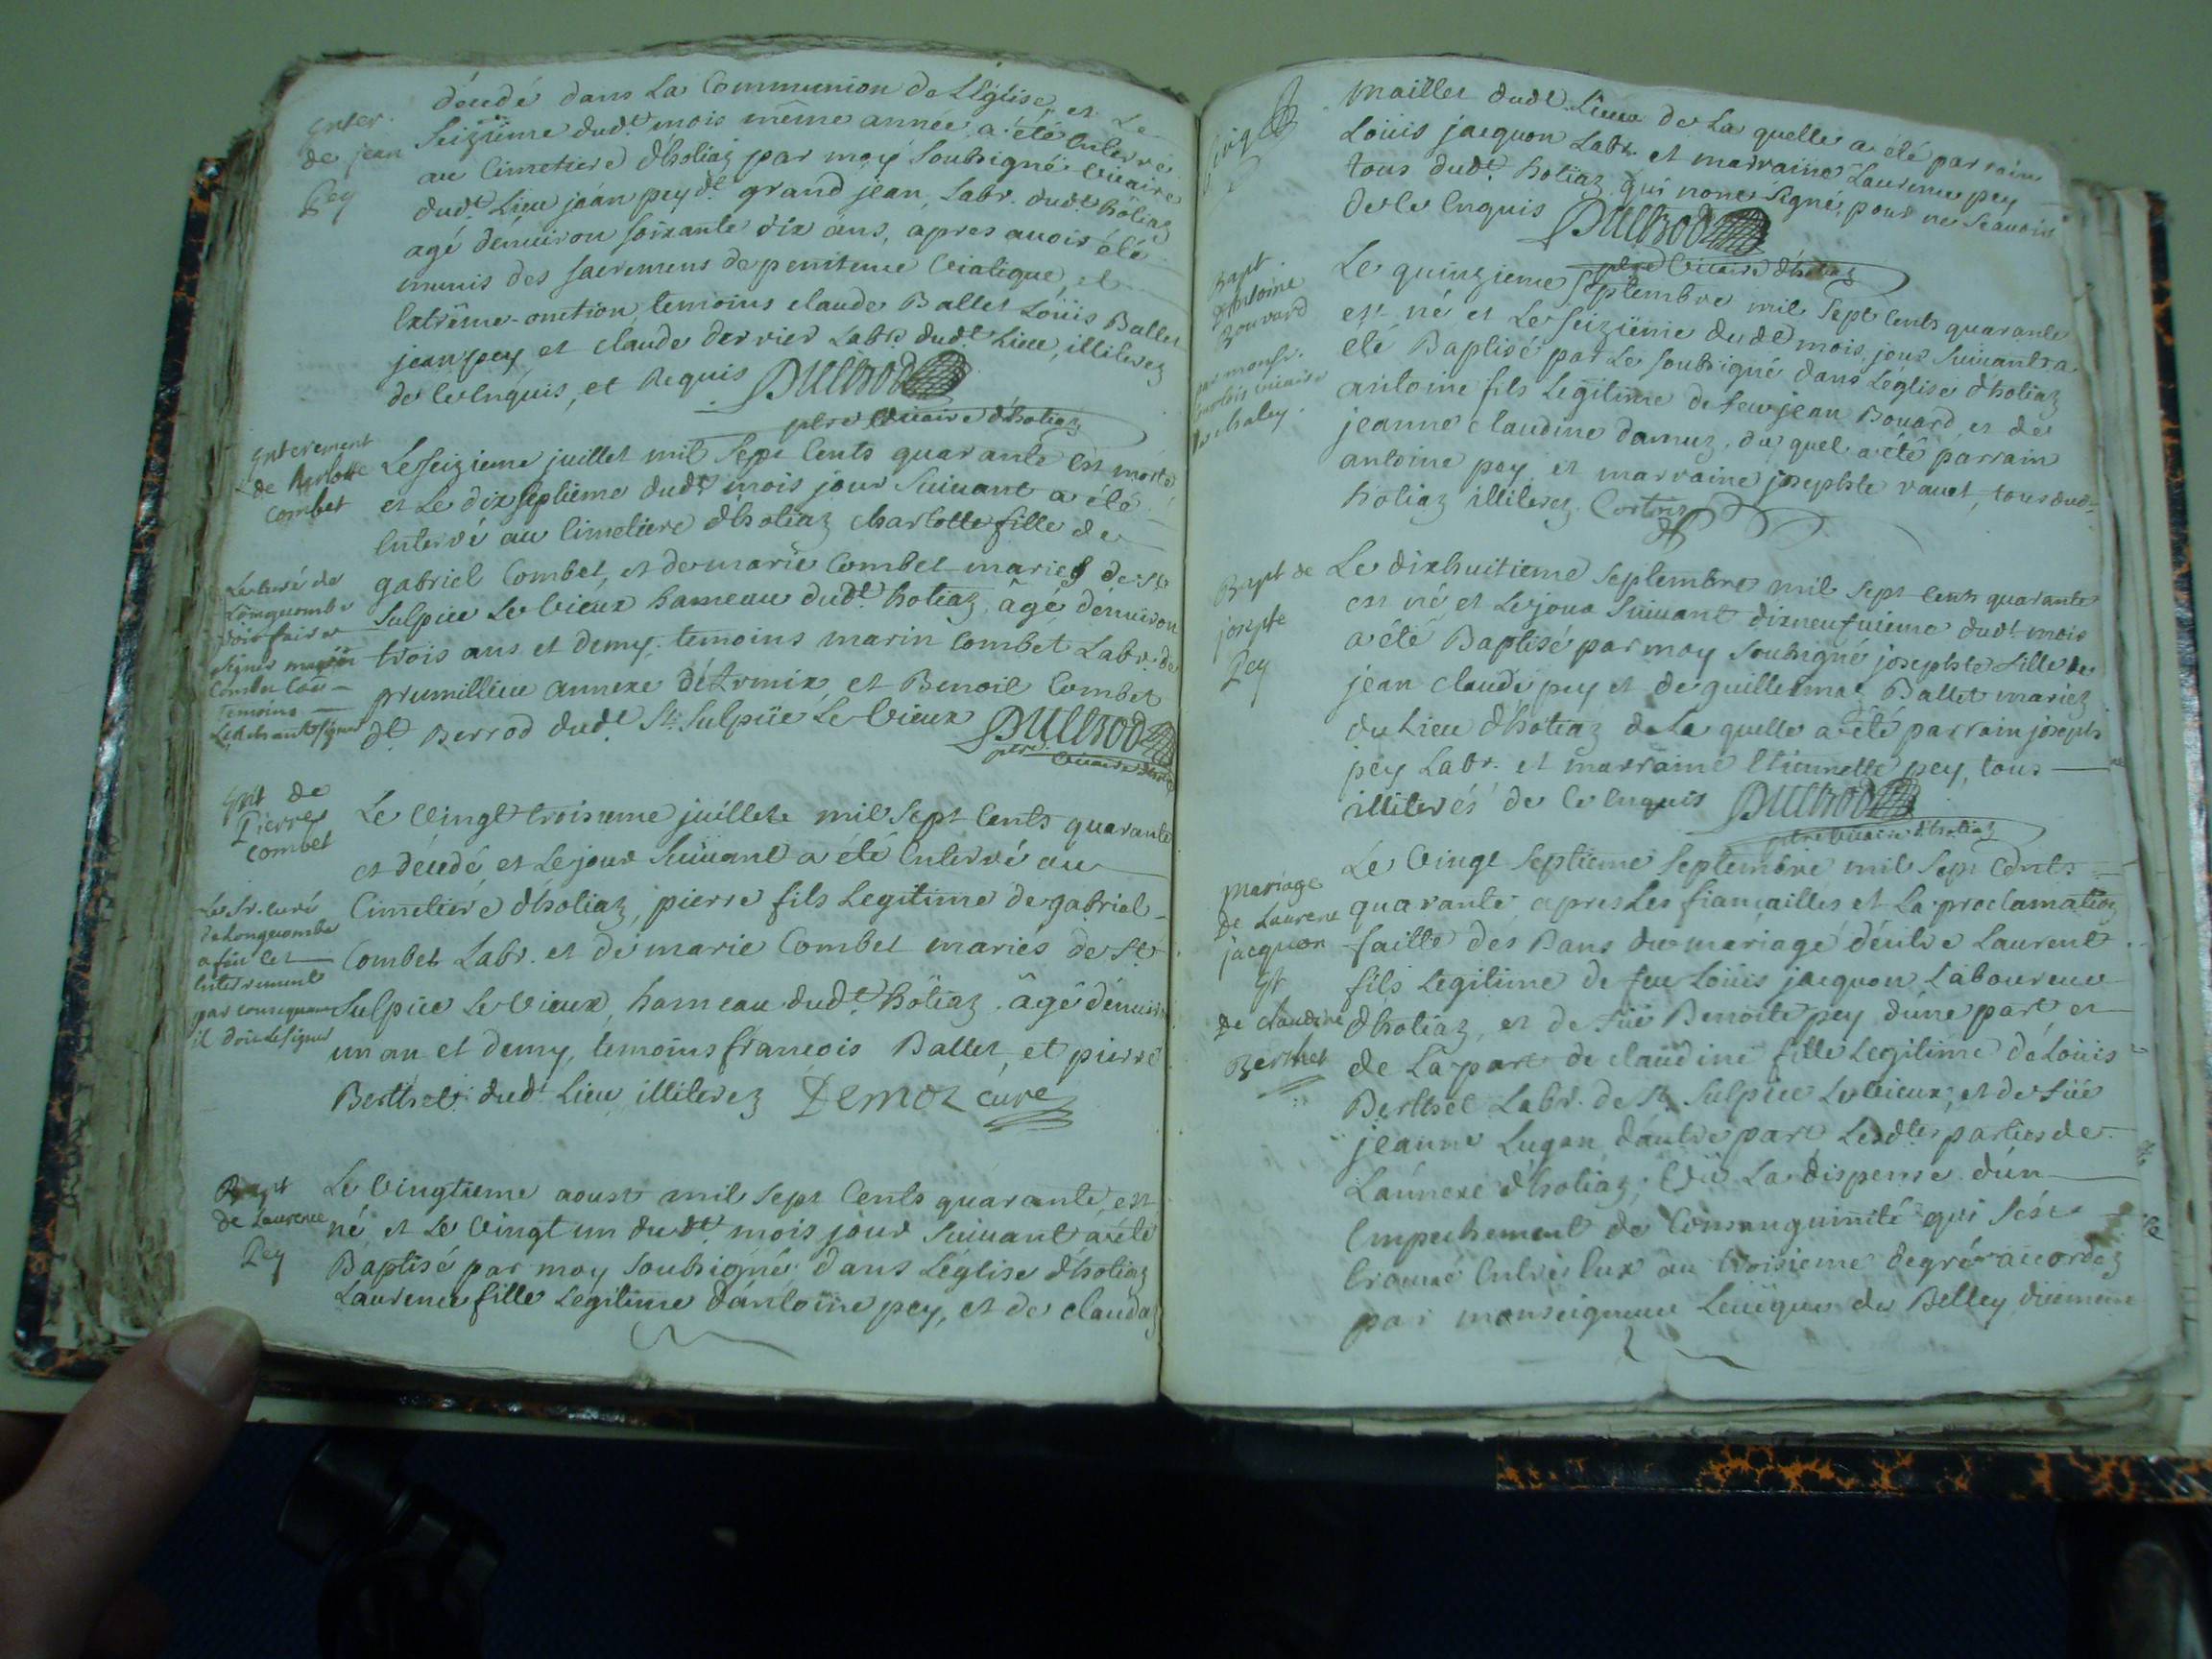 décedé dans La Communion de L'Eglise, et Le
Enter.
de jean
Pey
Seiziême dudt. mois même année, a été Enterré
au Cimetiere dhotiaz par moy Soubsigné Vicaire
dudt. Lieu jean pey dt. grand jean, Labr. dudt. hotiaz
agé dénuiron soixante dix ans, apres auoir été
munis des sacremens de penitence Viatique, et
Extrême-onction, temoins claude Ballet Loüis Ballet
jean pey, et claude Derrier Labrs dudt. Lieu, illiterez
de ce Enquis, et Requis
ptre Vicaire d'hotiaz
Enterement
de charlotte
Combet
Le Seizieme juillet mil Sept Cents quarante Est morte
et Le dix septieme dudt. mois jour Suiuant a été
Enterré au Cimetiere dhotiaz charlotte fille de
gabriel Combet, et de marie Combet mariés de St
Sulpice Le Vieux hameau dudt. hotiaz, âgé dénuiron
trois ans et demy, temoins marin Combet Labr. de
prumillieu annexe et Benoit Combet
dt. Berrod dudt. St. Sulpice Le Vieux
ptre Vicaire dhotiaz
Le curé de
Longecombe
doit faire
signer
Combet
temoins
Ent de
Pierre
Combet
Le Vingt troisieme juillet mil Sept Cents quarante
est décedé, et Le jour Suiuant a été Enterré au
Cimetiere dhotiaz, pierre fils Legitime de gabriel
Combet Labr. et de marie Combet mariés de St
Sulpice Le Vieux, hameau dudt. hotiaz. âgé dénuiron
un an et demy, temoins francois Ballet, et pierre
Berthet dudt. Lieu illiterez Demoz curé
Le Sr. curé
de Longecombe
a fait cet
Enterrement
par consequant
il doit Le signer
Bapt
de Laurence
Pey
Le Vingtieme aoust mil Sept Cents quarante, est
né et Le Vingt un dudt. mois jour Suiuant a été
Baptisé par moy Soubsigné dans L'église dhotiaz
Laurence fille Legitime d'antoine pey, et de claudaz
maillet dudt. Lieu de La quelle a été parrain
Loüis jacquon Labr. et marraine Laurence pey
tous dudt. hotiaz qui n'ont Signé, pour ne Scauoir
de ce Enquis
ptre Vicaire d'hotiaz
Bapt.
d'Antoine
Bouvard
par monsr.
vicaire
de chaley.
Le quinzieme Septembre mil Sept Cents quarante
est né et Le seizieme dudt mois, jour Suiuant a
été Baptisé par Le soubsigné dans L'église dhotiaz
antoine fils Legitime de feu jean Bouard, et de
jeanne claudine damuz, du quel a été parrain
antoine pey et marraine josephte rauet, tous dudt.
hotiaz illiterez.
Bapt de
josepte
Pey
Le dixhuitieme Septembre mil Sept Cents quarante
est né et Le jour Suiuant dixneufuieme dudt mois
a été Baptisé par moy Soubsigné josephte fille de
jean claude pey et de guillermaz Ballet mariez
du Lieu dhotiaz de La quelle a été parrain joseph
pey Labr. et marraine Etiennette pey, tous
illiterés de ce Enquis
ptre Vicaire dhotiaz
Mariage
de Laurent
jacquon
Et
de claudine
Berthet
Le Vingt Septieme Septembre mil Sept Cents
quarante apres Les fiancailles et La proclamation
faitte des Bans du mariage déntre Laurent
fils Legitime de feu Loüis jacquon Laboureur
dhotiaz, et de füe Benoite pey dúne part et
de La part de claudine fille Legitime de Loüis
Berthet Labr. de St. Sulpice Le Vieux, et de füe
jeanne Lugan, d'autre part Lesdtes parties de
L'annexe dhotiaz; Vu La dispense d'ún
Empechement de Consanguinité qui S'ést
trouué Entre Eux au troisieme degré accordez
par monseigneur L'euêque de Belley, düement